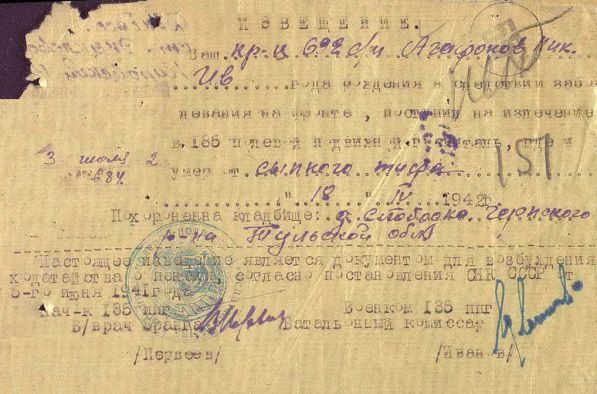 И З В Е Щ Е Н И Е.
Ваш кр-ц 692 с/п Агафонов Ник.
Ив года рождения в следствии забо
левания на фронте, поступил на излечение
в 185 полевой подвижной госпиталь, где и
3 июля 2
684
умер от сыпного тифа
" 18 " IV 1942г.
151
Похоронен на кладбище: д. Слободка Чернского
р-на Тульской обл
Настоящее извещение является документом для возбуждения
ходатайства о пенсии, согласно постановления СНК СССР от
5-го июня 1941 года
Нач-к 185 ппг Военком 185 ппг
В/врач 3ранга Батальонный комиссар
/Первеев/ /Иванов/